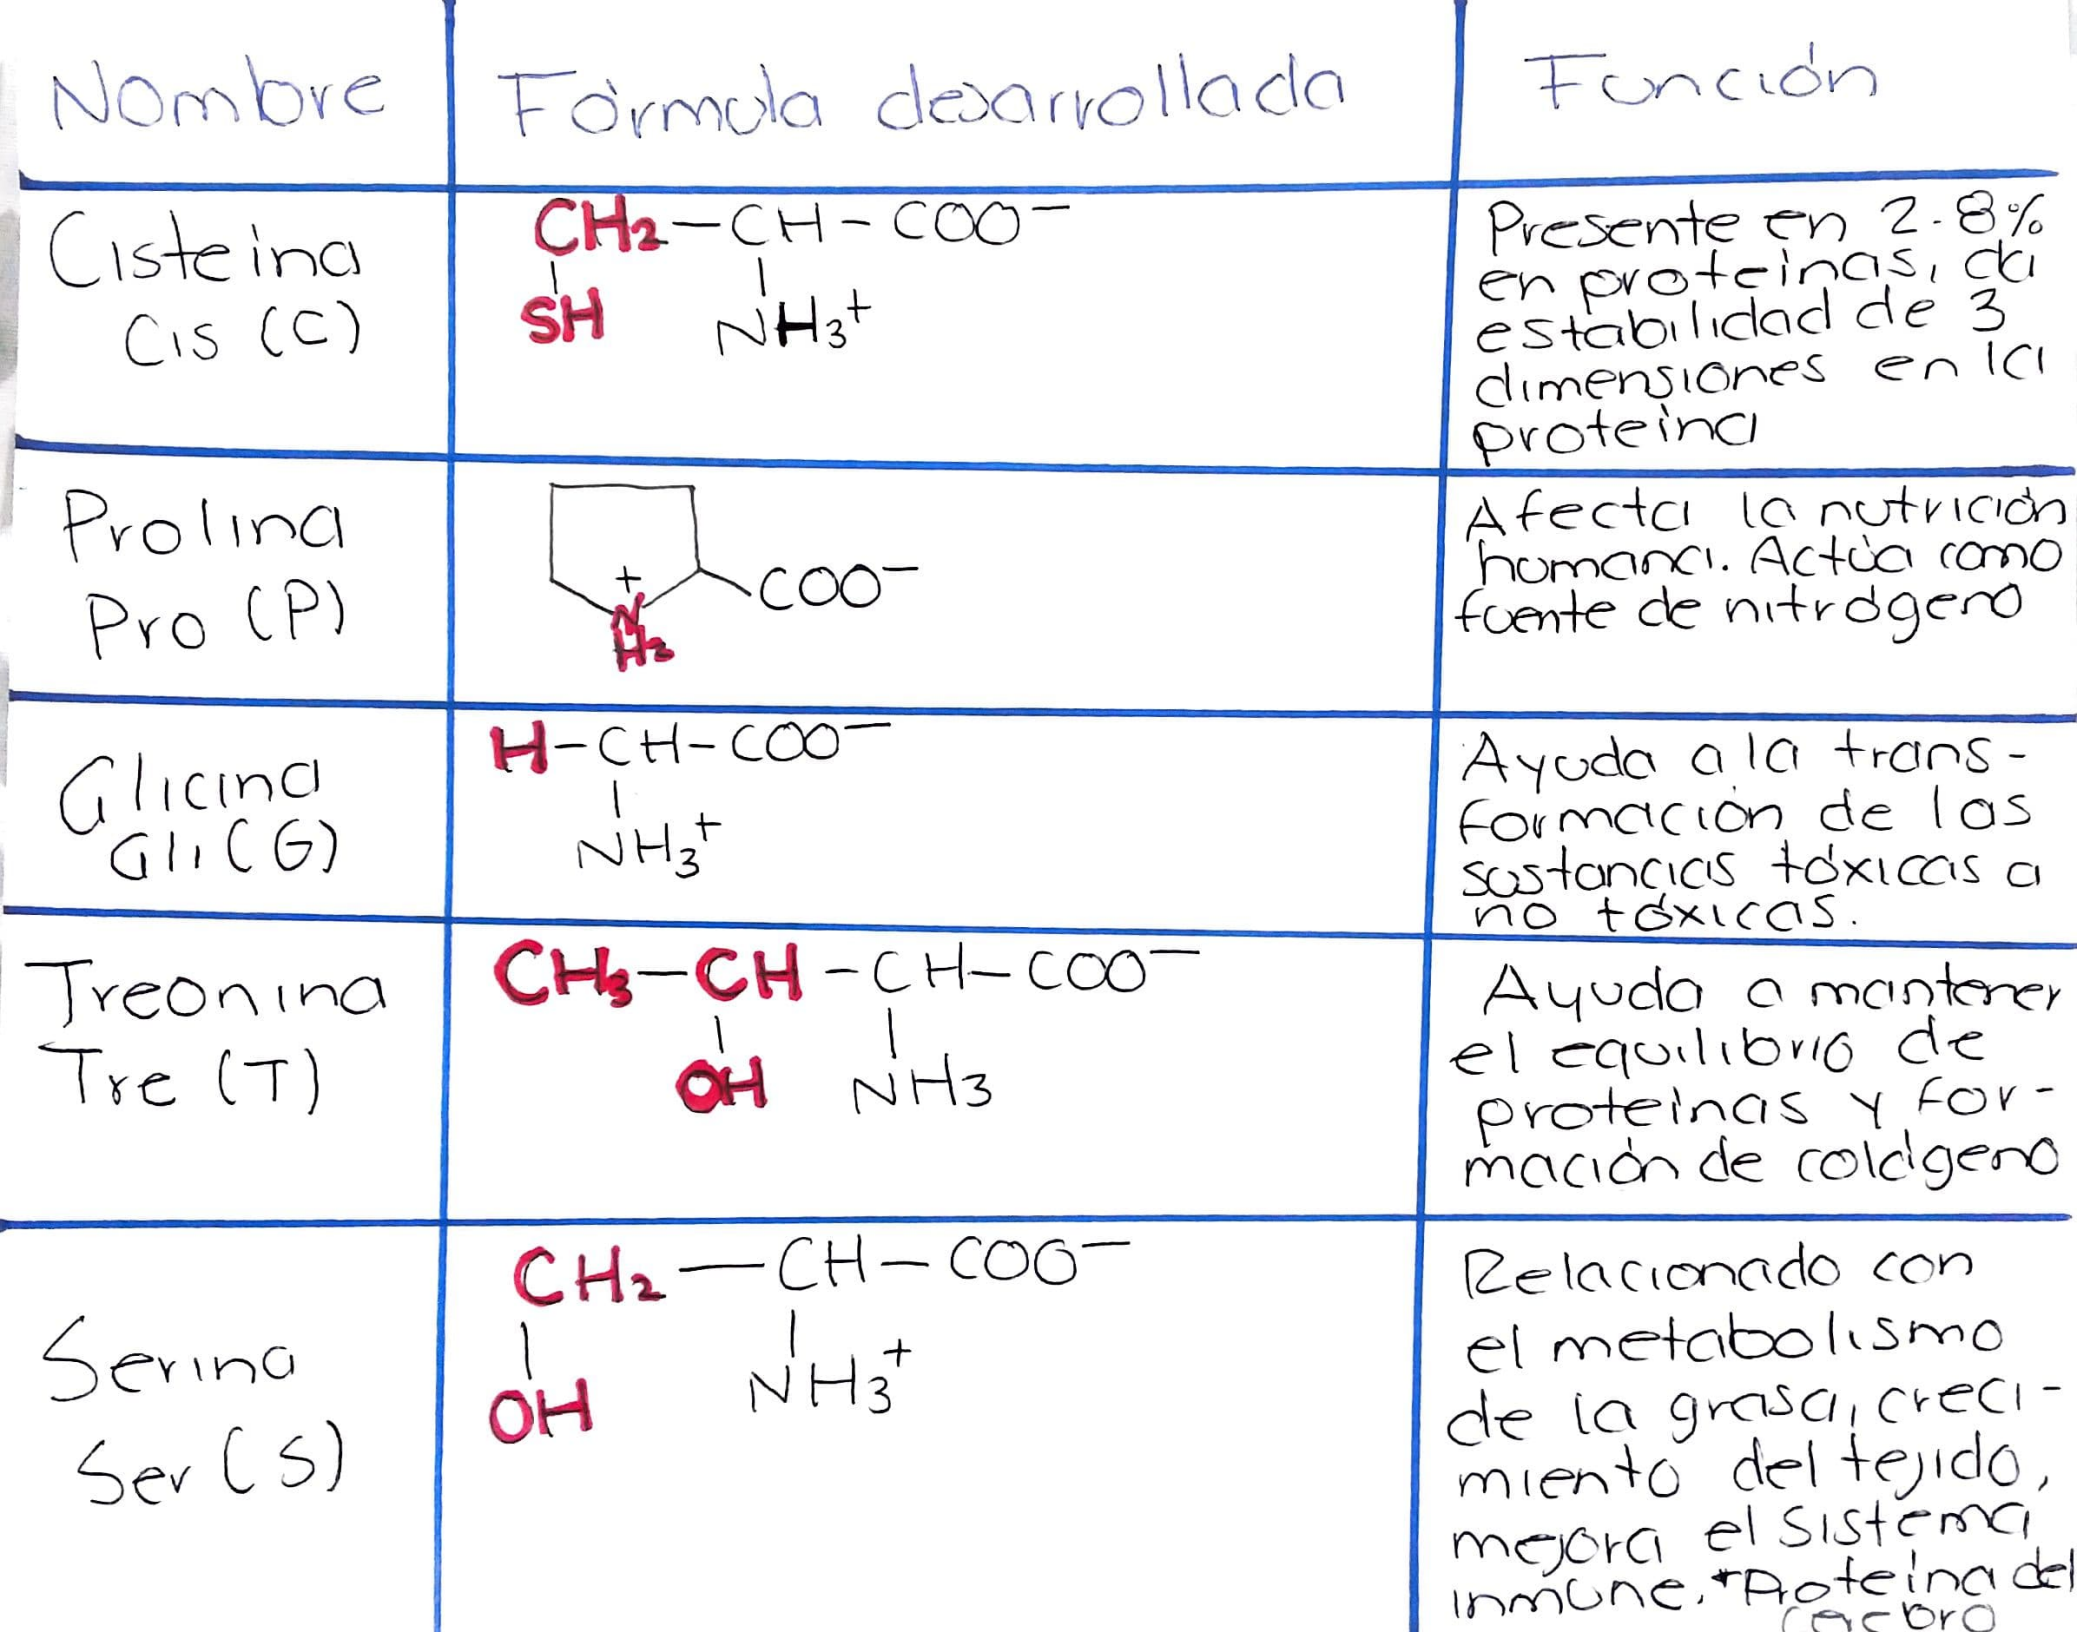 Nombre
Fórmula desarrollada
Función
Cisteina
Cis (C)
CH2-CH-COO-
SH
NH3+
Presente en 2-8%
en proteinas, da
estabilidad de 3
dimensiones en la
proteina
Prolina
Pro (P)
+
N
H2
COO-
Afecta la nutrición
humana. Actúa como
fuente de nitrógeno
Glicina
Gli (G)
H-CH-COO-
NH3+
Ayuda a la trans-
formación de las
sustancias tóxicas a
no tóxicas.
Treonina
Tre (T)
CH3-CH-CH-COO-
OH
NH3
Ayuda a mantener
el equilibrio de
proteinas y for-
mación de colágeno
Serina
Ser (S)
CH2-CH-COO-
OH
NH3+
Relacionado con
el metabolismo
de la grasa, creci-
miento del tejido,
mejora el sistema
inmune. *Proteina del